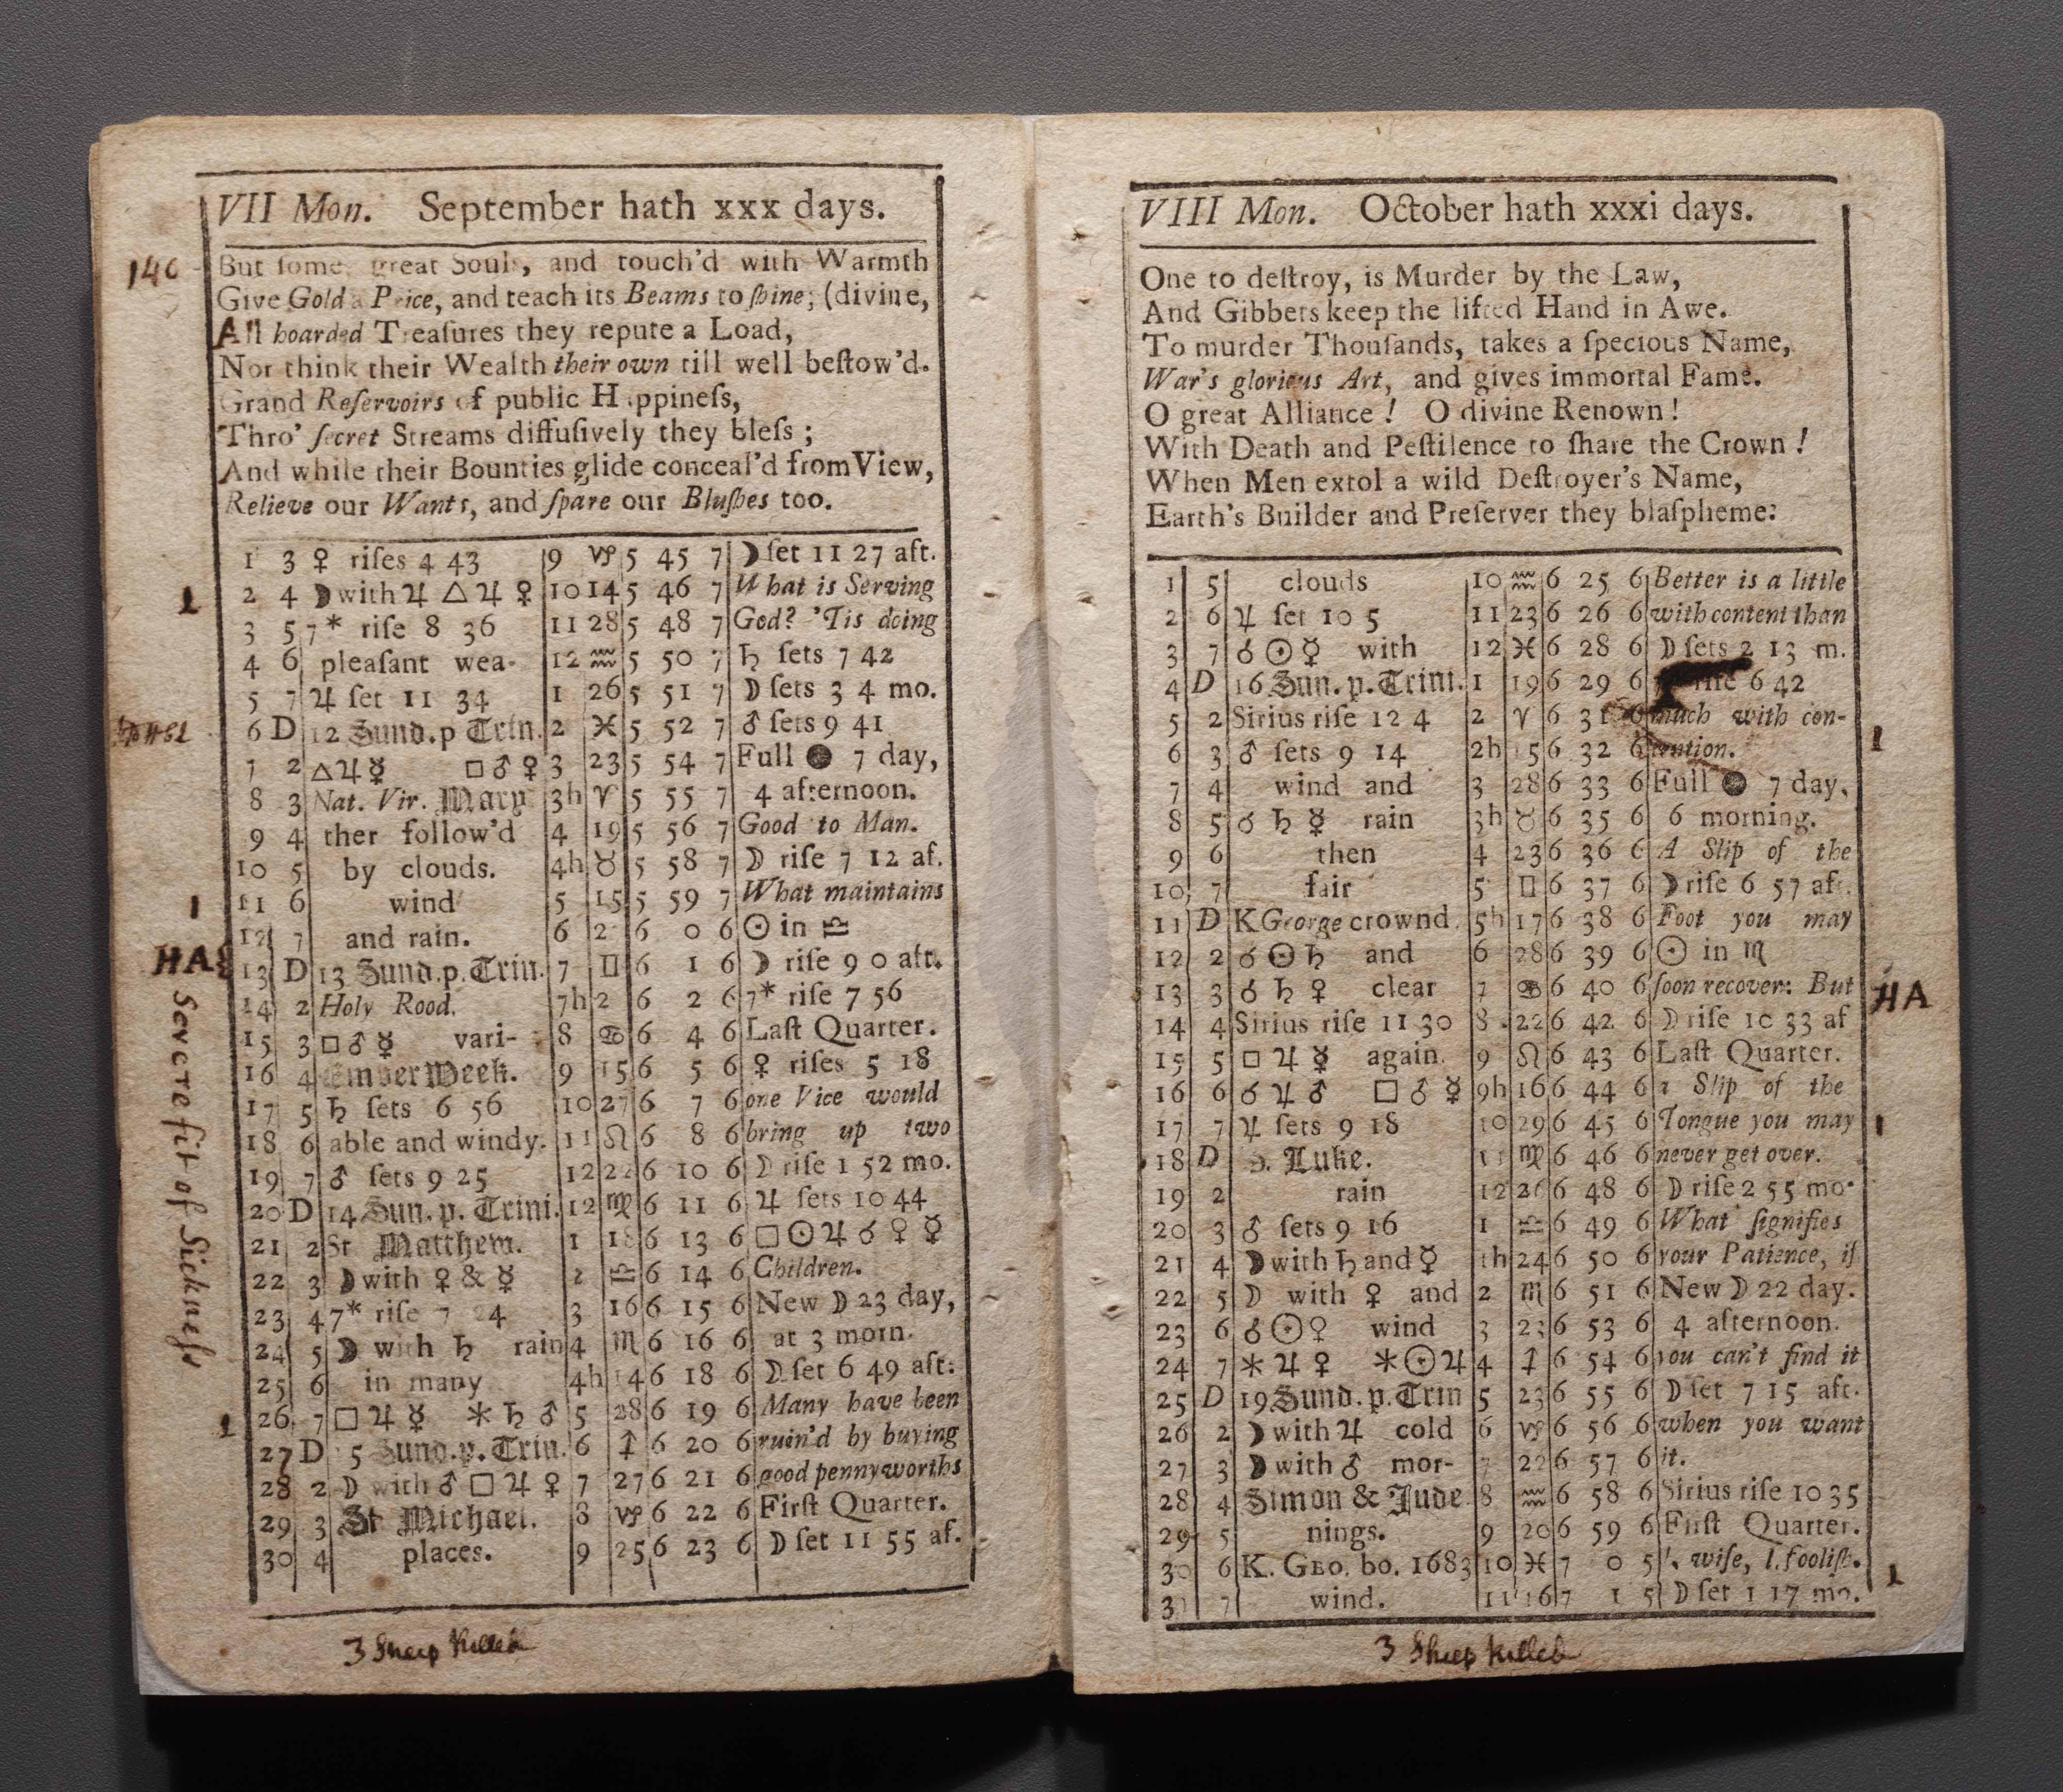 VII Mon. September hath xxx days.
146
But ſome, great Souls, and touch'd with Warmth
Give Gold a Price, and teach its Beams to ſhine; (divine,
All hoarded Treaſures they repute a Load,
Nor think their Wealth their own till well beſtow'd.
Grand Reſervoirs of public Happineſs,
Thro' ſecret Streams diffuſively they bleſs ;
And while their Bounties glide conceal'd from View,
Relieve our Wants, and ſpare our Bluſhes too.
1 3 ♀ riſes 4 43 9 ♑ 5 45 7 ☽ ſet 11 27 aft.
2 4 ☽ with ♃ △ ♃ ♀ 10 14 5 46 7 What is Serving
3 5 7* riſe 8 36 11 28 5 48 7 God? 'Tis doing
4 6 pleaſant wea- 12 ♒ 5 50 7 ♄ ſets 7 42
5 7 ♃ ſet 11 34 1 26 5 51 7 ☽ ſets 3 4 mo.
6 D 12 Sund. p Trin. 2 ♓ 5 52 7 ♂ ſets 9 41
7 2 △ ♃ ☿ □ ♂ ♀ 3 23 5 54 7 Full ● 7 day,
8 3 Nat. Vir. Mary 3h ♈ 5 55 7 4 afternoon.
9 4 ther follow'd 4 19 5 56 7 Good to Man.
10 5 by clouds. 4h ♉ 5 58 7 ☽ riſe 7 12 af.
11 6 wind 5 15 5 59 7 What maintains
12 7 and rain. 6 2 6 0 6 ☉ in ♎
HA
13 D 13 Sund. p. Trin. 7 ♊ 6 1 6 ☽ riſe 9 0 aft.
14 2 Holy Rood. 7h 2 6 2 6 7* riſe 7 56
15 3 □ ♂ ☿ vari- 8 ♋ 6 4 6 Laſt Quarter.
16 4 Ember Week. 9 15 6 5 6 ♀ riſes 5 18
17 5 ♄ ſets 6 56 10 27 6 7 6 one Vice would
18 6 able and windy. 11 ♌ 6 8 6 bring up two
19 7 ♂ ſets 9 25 12 22 6 10 6 ☽ riſe 1 52 mo.
20 D 14 Sun. p. Trini. 12 ♍ 6 11 6 ♃ ſets 10 44
21 2 St Matthew. 1 18 6 13 6 □ ☉ ♃ ☌ ♀ ☿
22 3 ☽ with ♀ & ☿ 2 ♎ 6 14 6 Children.
23 4 7* riſe 7 24 3 16 6 15 6 New ☽ 23 day,
24 5 ☽ with ♄ rain 4 ♏ 6 16 6 at 3 morn.
25 6 in many 4h 14 6 18 6 ☽ ſet 6 49 aft:
26 7 □ ♃ ☿ ✱ ♄ ♂ 5 28 6 19 6 Many have been
27 D 15 Sund. p. Trin. 6 ♐ 6 20 6 ruin'd by buying
28 2 ☽ with ♂ □ ♃ ♀ 7 27 6 21 6 good pennyworths
29 3 St Michael. 8 ♑ 6 22 6 Firſt Quarter.
30 4 places. 9 25 6 23 6 ☽ ſet 11 55 af.
Severe fit of Sickneſs
3 Sheep Killed
VIII Mon. October hath xxxi days.
One to deſtroy, is Murder by the Law,
And Gibbets keep the lifted Hand in Awe.
To murder Thouſands, takes a ſpecious Name,
War's glorious Art, and gives immortal Fame.
O great Alliance ! O divine Renown !
With Death and Peſtilence to ſhare the Crown !
When Men extol a wild Deſtroyer's Name,
Earth's Builder and Preſerver they blaſpheme:
1 5 clouds 10 ♒ 6 25 6 Better is a little
2 6 ♃ ſet 10 5 11 23 6 26 6 with content than
3 7 ☌ ☉ ☿ with 12 ♓ 6 28 6 ☽ ſets 2 13 m.
4 D 16 Sun. p. Trini. 1 19 6 29 6 riſe 6 42
5 2 Sirius riſe 12 4 2 ♈ 6 31 6 much with con-
6 3 ♂ ſets 9 14 2h 15 6 32 6 tention.
7 4 wind and 3 28 6 33 6 Full ● 7 day,
8 5 ☌ ♄ ☿ rain 3h ♉ 6 35 6 6 morning.
9 6 then 4 23 6 36 6 A Slip of the
10 7 fair 5 ♊ 6 37 6 ☽ riſe 6 57 aft.
11 D K George crownd. 5h 17 6 38 6 Foot you may
12 2 ☌ ☉ ♄ and 6 28 6 39 6 ☉ in ♏
13 3 ☌ ♄ ♀ clear 7 ♋ 6 40 6 ſoon recover: But
HA
14 4 Sirius riſe 11 30 8 22 6 42 6 ☽ riſe 10 33 af
15 5 □ ♃ ☿ again. 9 ♌ 6 43 6 Laſt Quarter.
16 6 ☌ ♃ ♂ □ ♂ ☿ 9h 16 6 44 6 a Slip of the
17 7 ♃ ſets 9 18 10 29 6 45 6 Tongue you may
18 D S. Luke. 11 ♍ 6 46 6 never get over.
19 2 rain 12 26 6 48 6 ☽ riſe 2 55 mo.
20 3 ♂ ſets 9 16 1 ♎ 6 49 6 What ſignifies
21 4 ☽ with ♄ and ☿ 1h 24 6 50 6 your Patience, if
22 5 ☽ with ♀ and 2 ♏ 6 51 6 New ☽ 22 day.
23 6 ☌ ☉ ♀ wind 3 23 6 53 6 4 afternoon.
24 7 ✱ ♃ ♀ ✱ ☉ ♃ 4 ♐ 6 54 6 you can't find it
25 D 19 Sund. p. Trin 5 23 6 55 6 ☽ ſet 7 15 aft.
26 2 ☽ with ♃ cold 6 ♑ 6 56 6 when you want
27 3 ☽ with ♂ mor- 7 22 6 57 6 it.
28 4 Simon & Jude. 8 ♒ 6 58 6 Sirius riſe 10 35
29 5 nings. 9 20 6 59 6 Firſt Quarter.
30 6 K. GEO. bo. 1683 10 ♓ 7 0 5 wiſe, l. fooliſh.
31 7 wind. 11 16 7 1 5 ☽ ſet 1 17 mo.
3 Sheep Killed